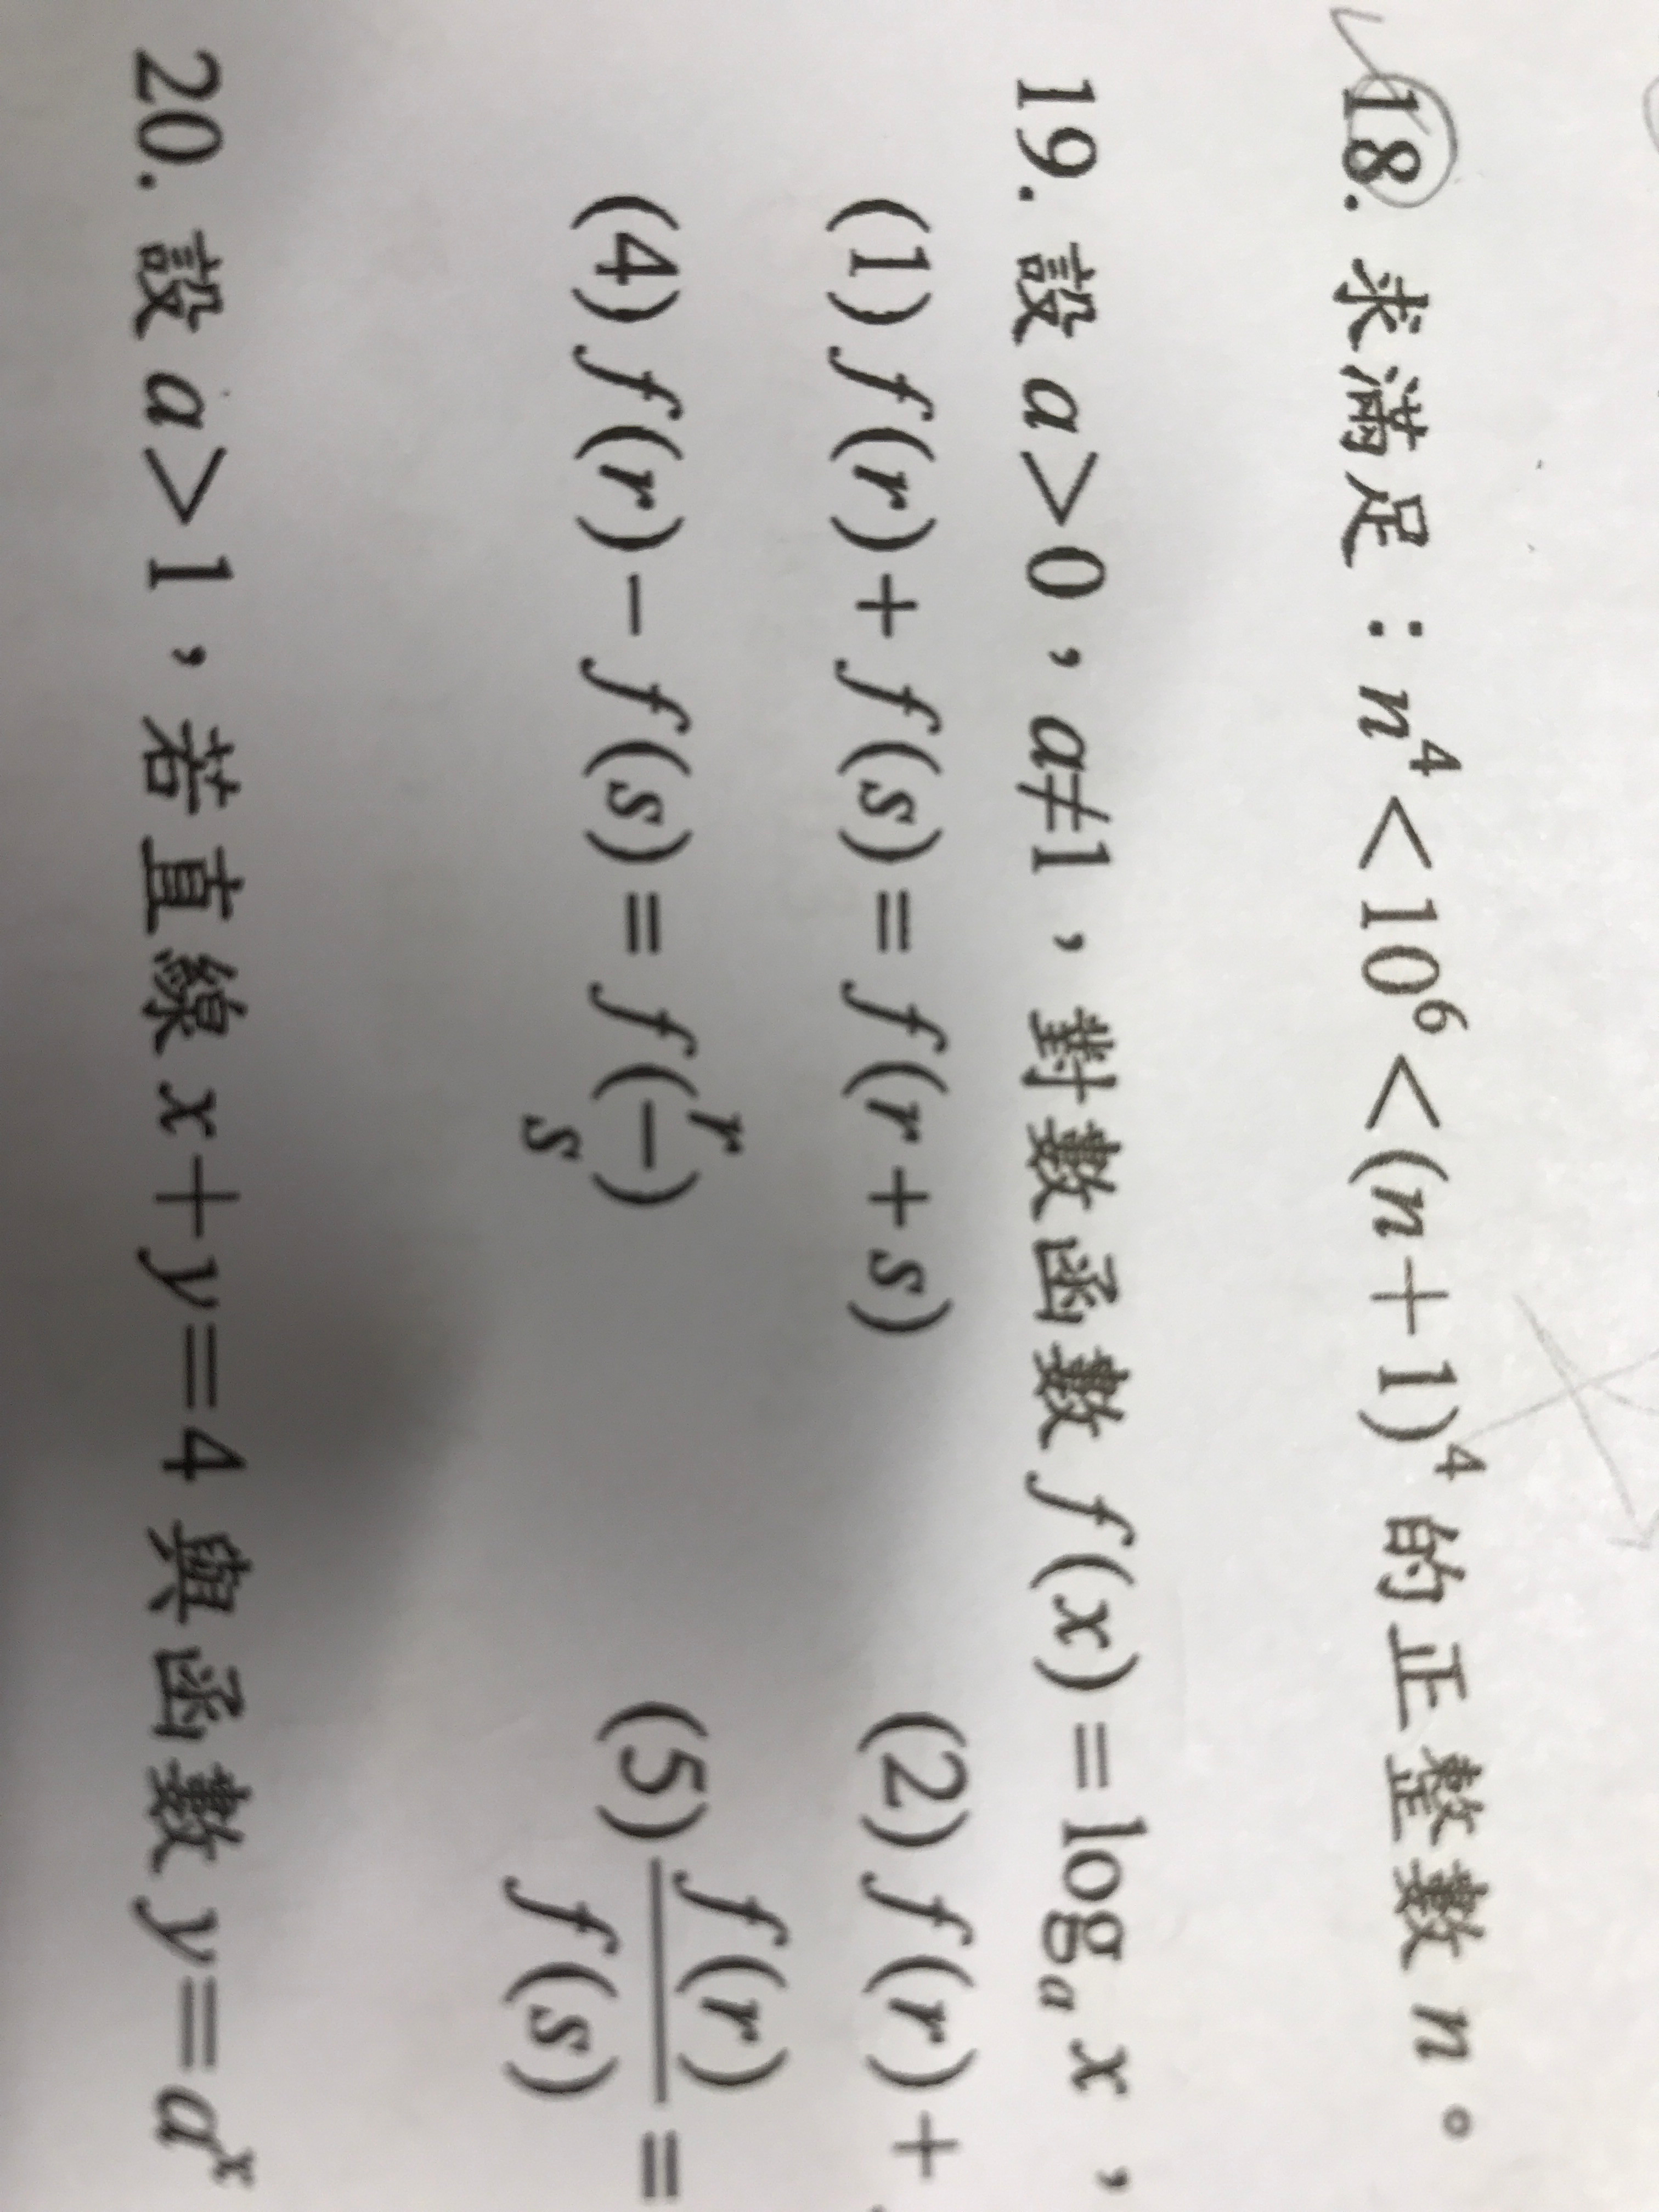 18. 求滿足：n⁴<10⁶<(n+1)⁴ 的正整數 n。
19. 設 a>0，a≠1，對數函數 f(x)=logₐ x，
(1) f(r)+f(s)=f(r+s) (2) f(r)+
(4) f(r)−f(s)=f(r/s) (5) f(r)/f(s)=
20. 設 a>1，若直線 x+y=4 與函數 y=aˣ